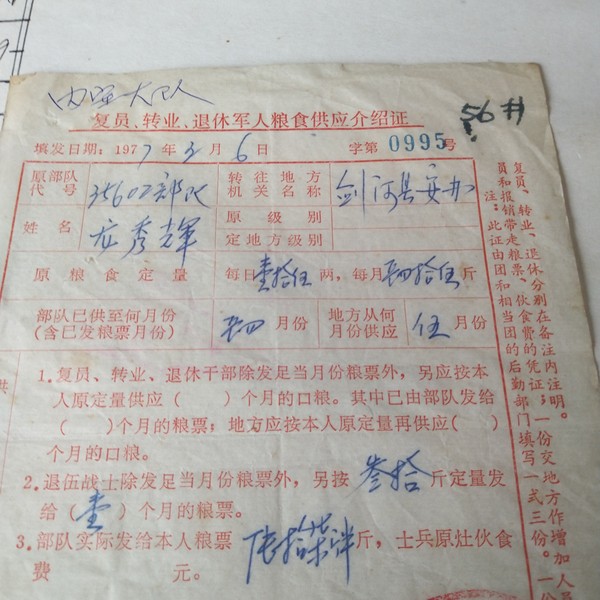 复员、转业、退休军人粮食供应介绍证
56#
填发日期：1977年3月6日 字第0995号
原部队代号 35602部队 转往地方机关名称 剑河县安办
姓名 龙秀辉 原级别
定地方级别
原粮食定量 每日壹拾伍两，每月肆拾伍斤
部队已供至何月份(含已发粮票月份) 肆月份 地方从何月份供应 伍月份
1.复员、转业、退休干部除发足当月份粮票外，另应按本
人原定量供应（ ）个月的口粮。其中已由部队发给
（ ）个月的粮票；地方应按本人原定量再供应（ ）
个月的口粮。
2.退伍战士除发足当月份粮票外，另按叁拾斤定量发
给（壹）个月的粮票。
3.部队实际发给本人粮票 陆拾柒斤，士兵原灶伙食
费 元。
注：此证由团和相当团的后勤部门填写一式三份。一份
员和报销带走粮票、伙食费的凭证；一份交地方作增加人员
复员、转业、退休分别在备注内注明。
供